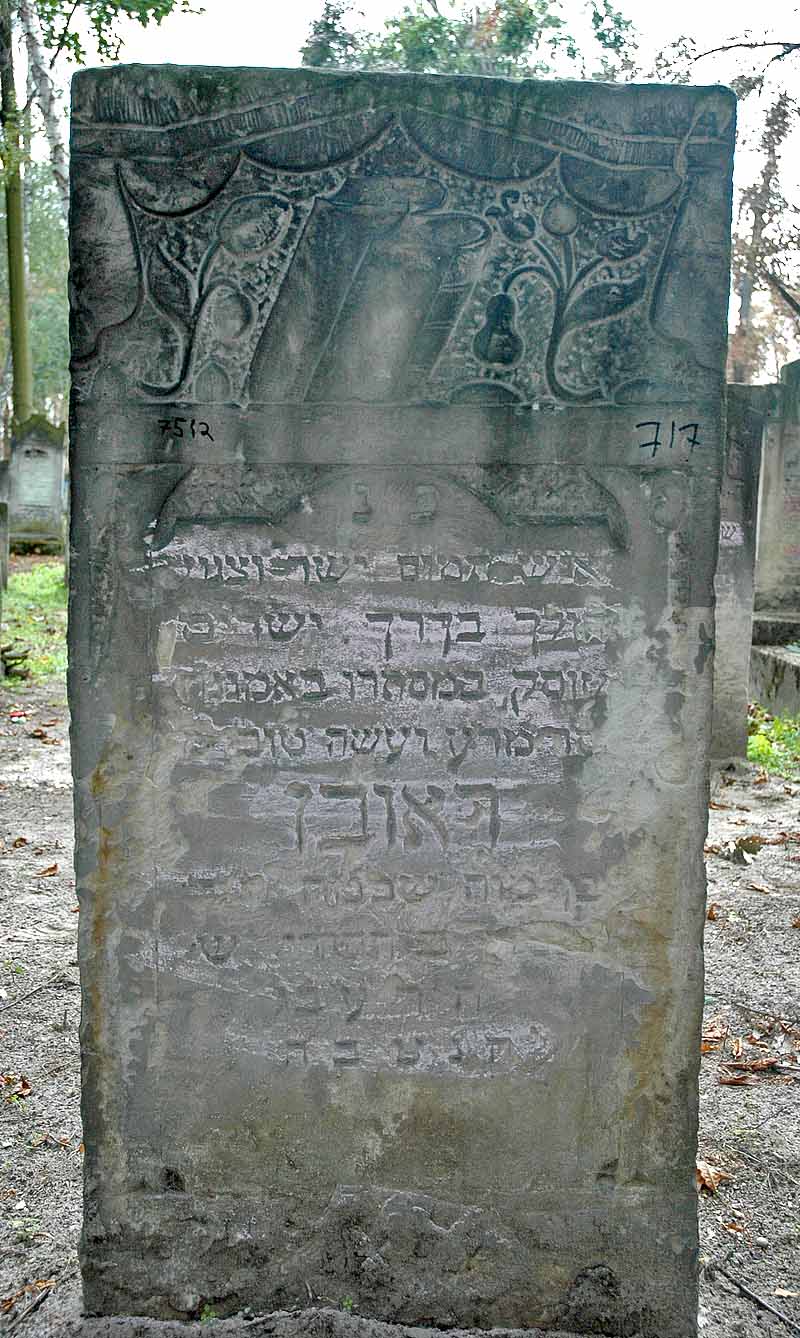 7512 717
פ נ
איש תמים ישר וצנוע
הולך בדרך ישרים
עוסק במסחרו באמונה
סר מרע ועשה טוב
ראובן
בן מוה שכנא
תשרי ש
עבר
ת נ צ ב ה